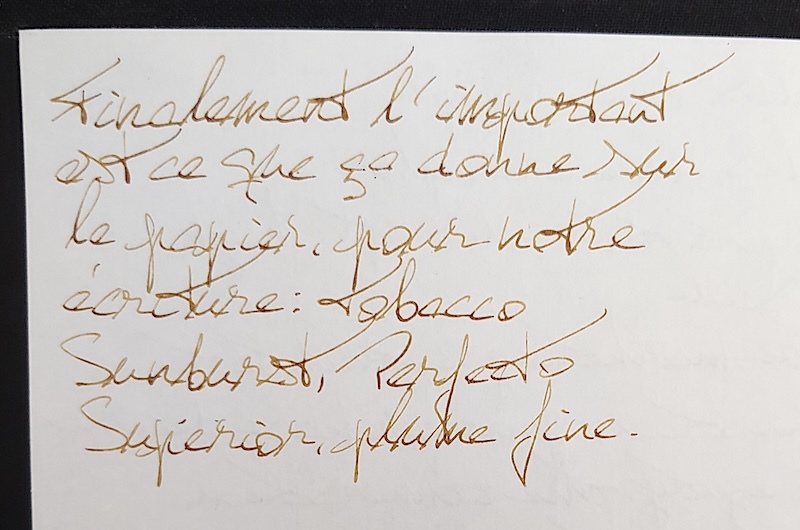 Finalement l'important
est ce que ça donne sur
le papier, pour notre
écriture: Tobacco
Sunburst, Perfecto
Superior, plume fine.